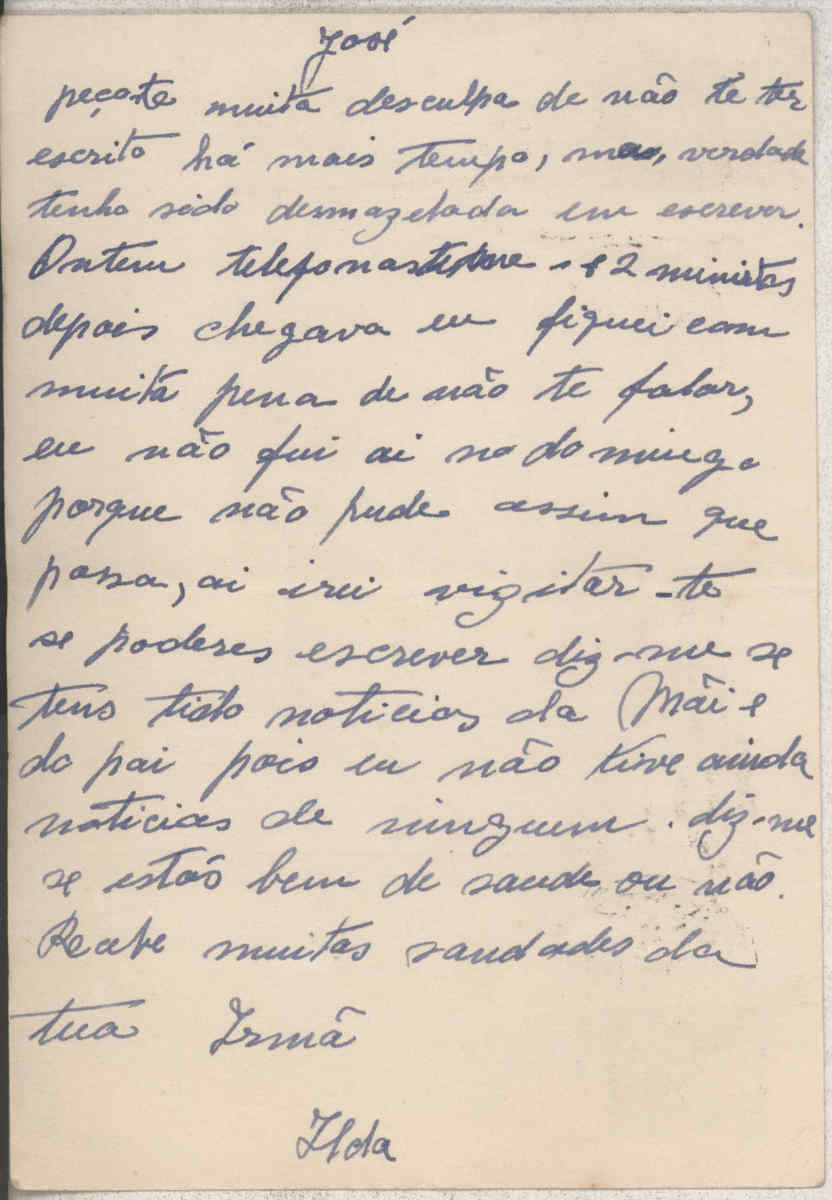 José
peço-te muita desculpa de não te ter
escrito há mais tempo, mas, verdade
tenho sido desmazelada em escrever.
Ontem telefonaste-me e 2 minutos
depois chegava eu fiquei com
muita pena de não te falar,
eu não fui ai no domingo
porque não pude assim que
possa, ai irei vizitar-te
se poderes escrever diz-me se
tens tido noticias da Mãi e
do pai pois eu não tive ainda
noticias de ninguem. diz-me
se estás bem de saude ou não.
Recebe muitas saudades da
tua Irmã
Ilda